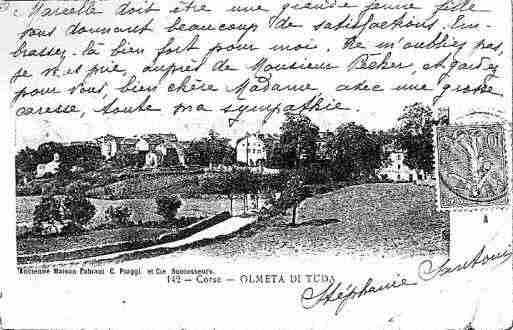 Marcelle doit être une grande jeune fille
vous donnant beaucoup de satisfactions. Em-
brassez-la bien fort pour moi. Ne m'oubliez pas,
je v. en prie, auprès de Monsieur Beker, et gardez
pour vous, bien chère Madame avec une grosse
caresse, toute ma sympathie.
10
Ancienne Maison Fabiani C. Piaggi et Cie Successeurs.
142 - Corse - OLMETA DI TUDA
Stéphanie Santoni